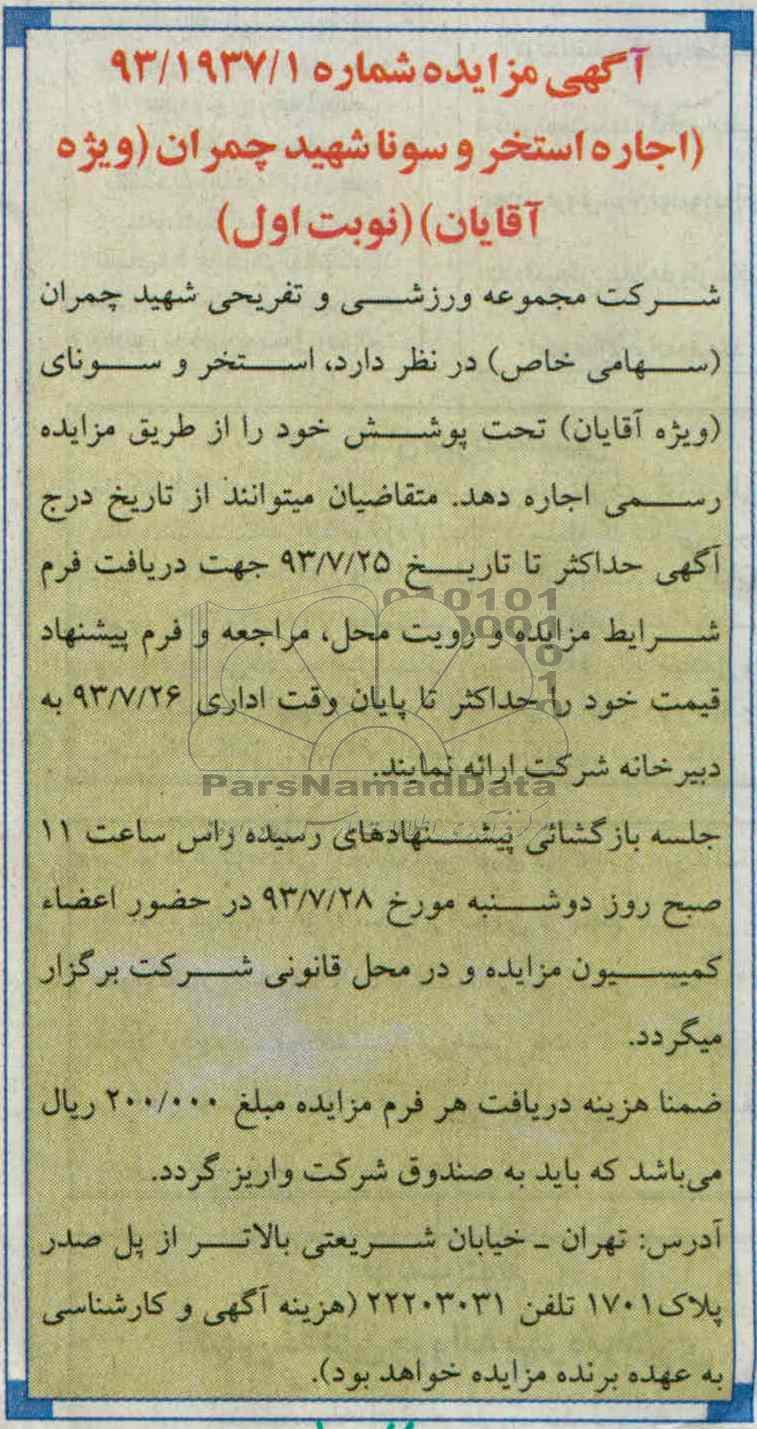 آگهی مزایده شماره ۹۳/۱۹۳۷/۱
(اجاره استخر و سونا شهید چمران (ویژه
آقایان) (نوبت اول)
شرکت مجموعه ورزشی و تفریحی شهید چمران
(سهامی خاص) در نظر دارد، استخر و سونای
(ویژه آقایان) تحت پوشش خود را از طریق مزایده
رسمی اجاره دهد. متقاضیان میتوانند از تاریخ درج
آگهی حداکثر تا تاریخ ۹۳/۷/۲۵ جهت دریافت فرم
شرایط مزایده و رویت محل، مراجعه و فرم پیشنهاد
قیمت خود را حداکثر تا پایان وقت اداری ۹۳/۷/۲۶ به
دبیرخانه شرکت ارائه نمایند.
ParsNamadData
جلسه بازگشائی پیشنهادهای رسیده راس ساعت ۱۱
صبح روز دوشنبه مورخ ۹۳/۷/۲۸ در حضور اعضاء
کمیسیون مزایده و در محل قانونی شرکت برگزار
میگردد.
ضمنا هزینه دریافت هر فرم مزایده مبلغ ۲۰۰/۰۰۰ ریال
می‌باشد که باید به صندوق شرکت واریز گردد.
آدرس: تهران ـ خیابان شریعتی بالاتر از پل صدر
پلاک ۱۷۰۱ تلفن ۲۲۲۰۳۰۳۱ (هزینه آگهی و کارشناسی
به عهده برنده مزایده خواهد بود).